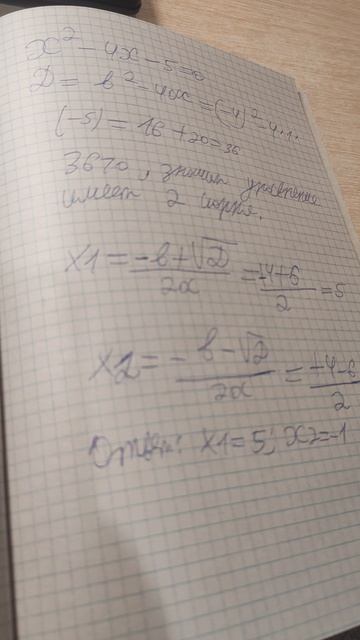 x² - 4x - 5 = 0
D = b² - 4ac = (-4)² - 4·1·
(-5) = 16 + 20 = 36
36>0, значит уравнение
имеет 2 корня.
x1 = (-b + √D)/2a = (+4+6)/2 = 5
x2 = (-b - √D)/2a = (+4-6)/2
Ответ: x1 = 5; x2 = -1